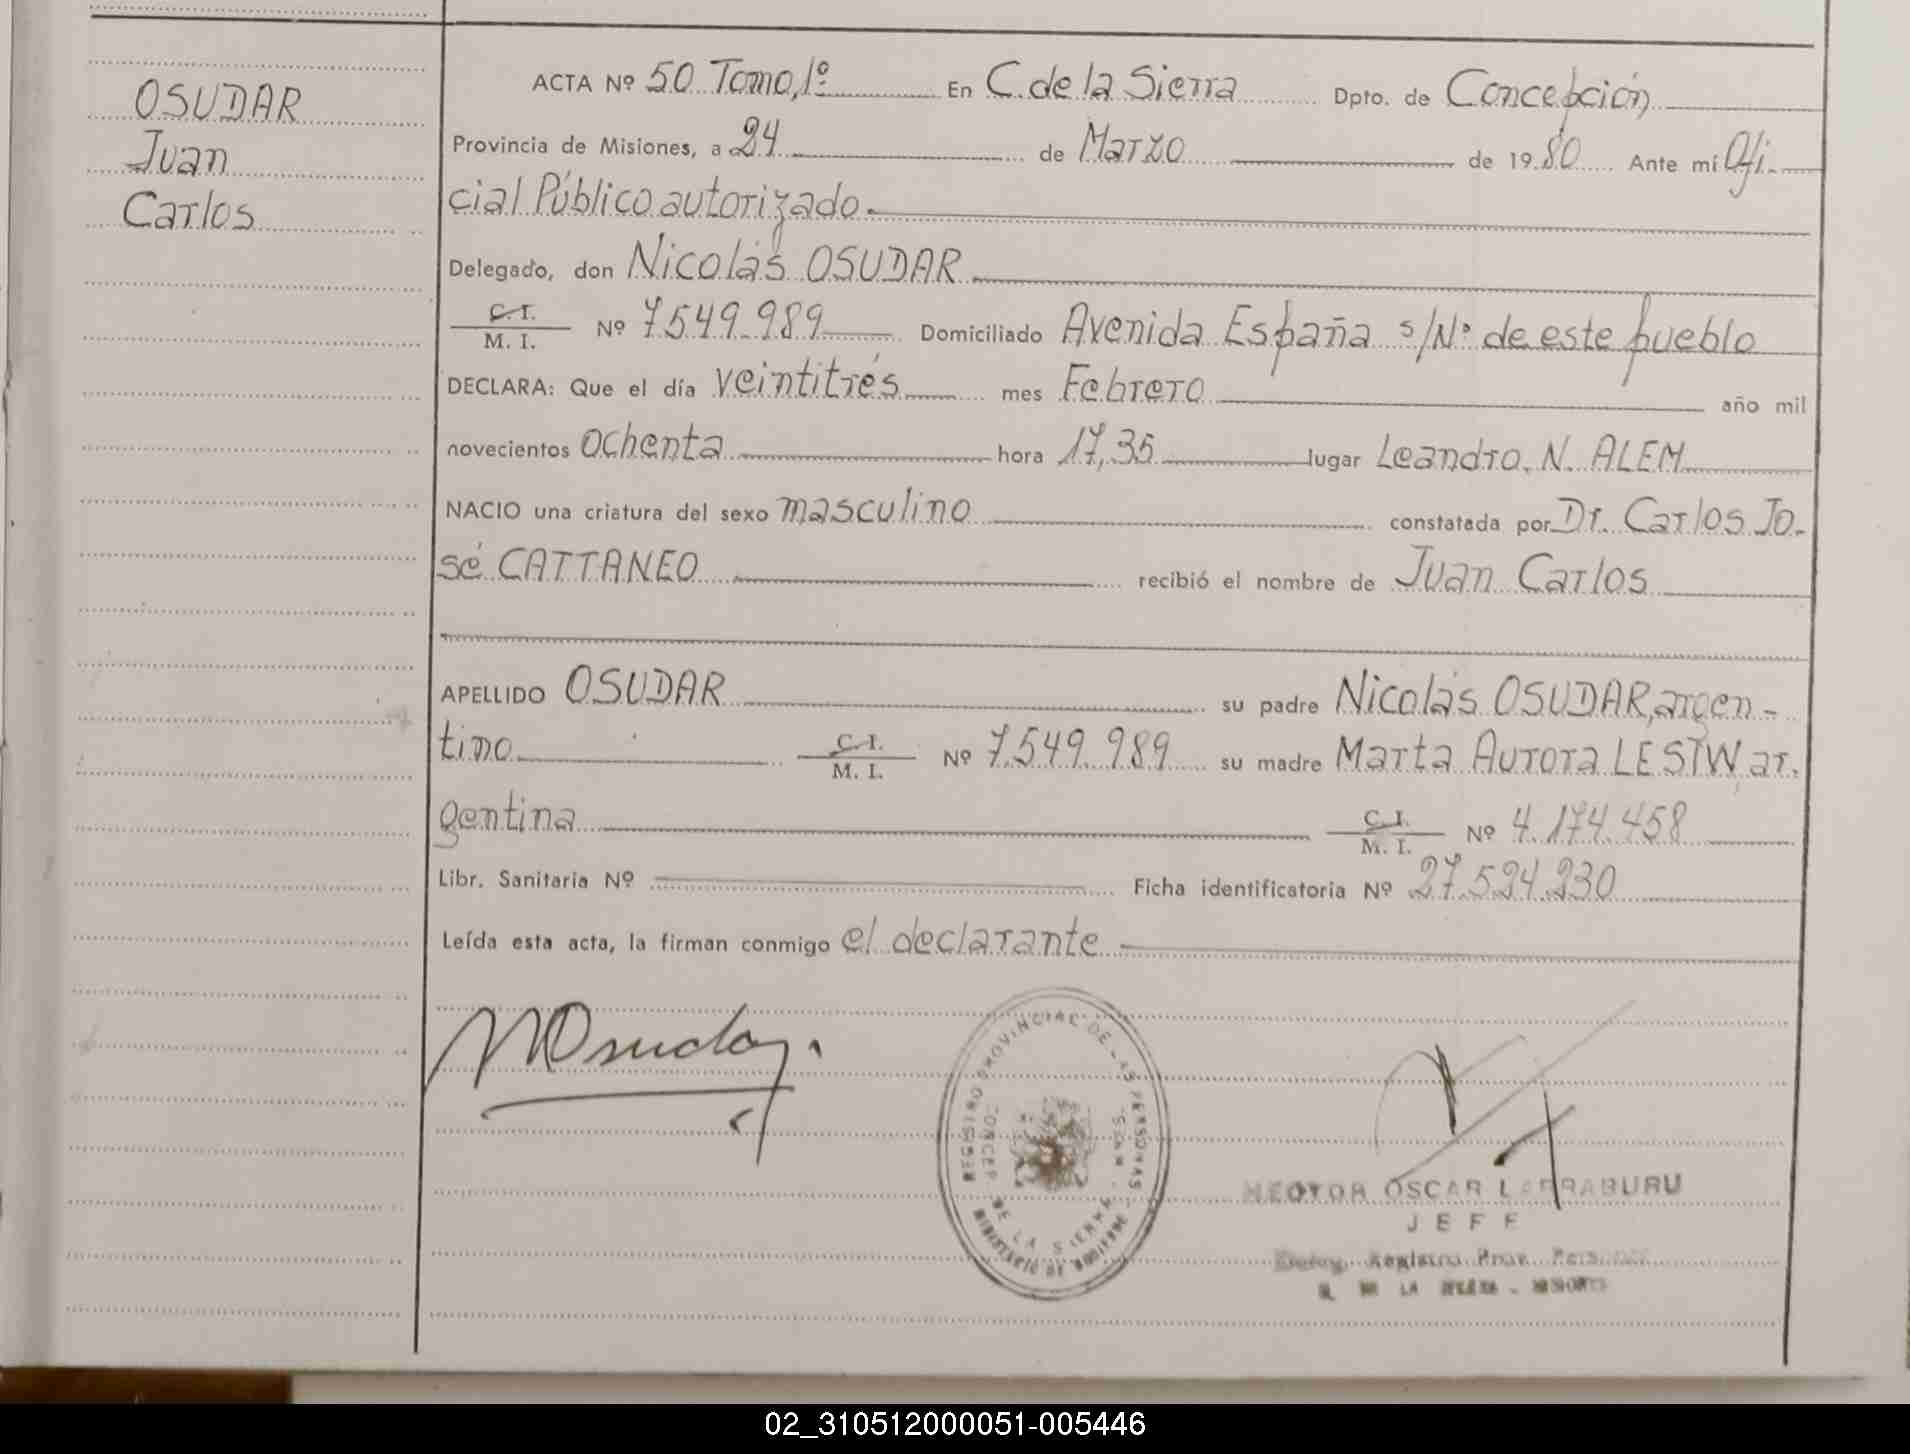 OSUDAR
Juan
Carlos
ACTA Nº 50 Tomo, 1º En C. de la Sierra Dpto. de Concepción
Provincia de Misiones, a 24 de Marzo de 1980 Ante mí Ofi-
cial Público autorizado.
Delegado, don Nicolás OSUDAR
C. I.
M. I. Nº 7.549.989 Domiciliado Avenida España s/Nº de este pueblo
DECLARA: Que el día veintitrés mes Febrero año mil
novecientos ochenta hora 17,35 lugar Leandro, N. ALEM
NACIO una criatura del sexo masculino constatada por Dr. Carlos Jo-
sé CATTANEO recibió el nombre de Juan Carlos
APELLIDO OSUDAR su padre Nicolás OSUDAR, argen-
tino C. I.
M. I. Nº 7.549.989 su madre Marta Aurora LESIW ar-
gentina C. I.
M. I. Nº 4.174.458
Libr. Sanitaria Nº Ficha identificatoria Nº 27.524.230
Leída esta acta, la firman conmigo el declarante
NOsudar.
REGISTRO PROVINCIAL DE LAS PERSONAS
CONCEP. DE LA SIERRA - MNES.
MINISTERIO DE GOBIERNO
HECTOR OSCAR LARRABURU
JEFE
Deleg. Registro Prov. Personas
C. DE LA SIERRA - MISIONES
02_310512000051-005446